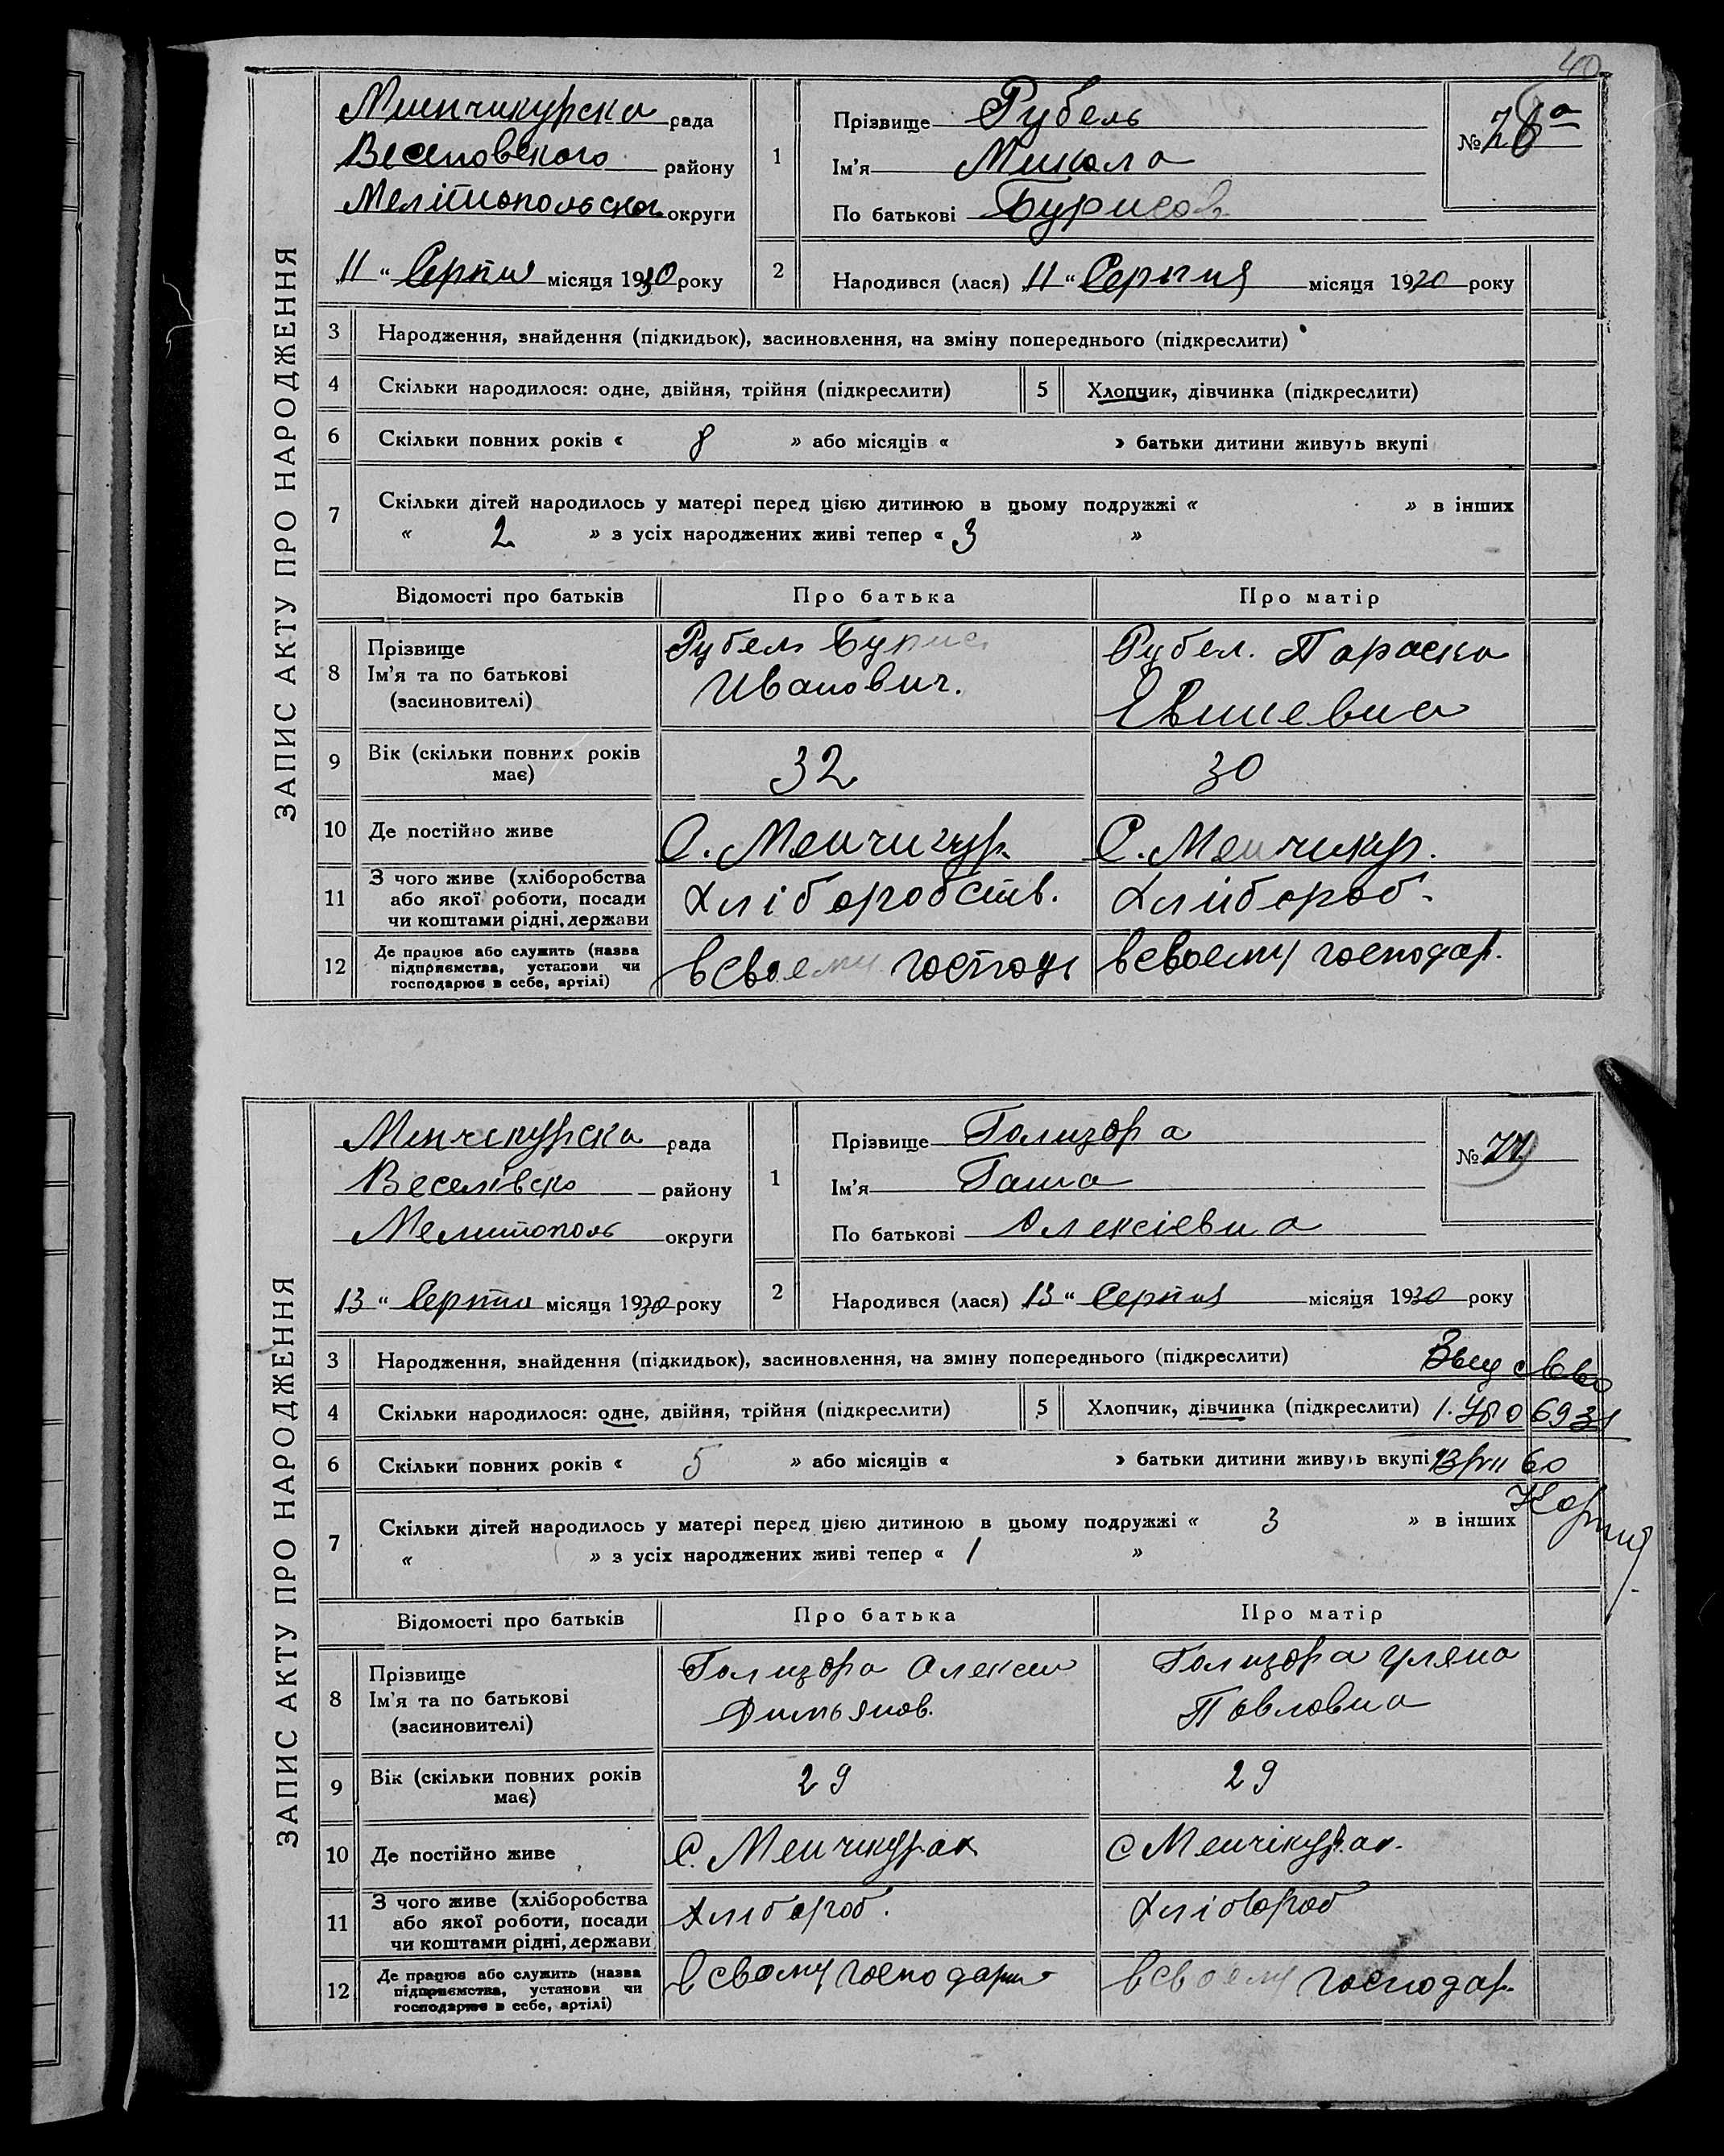 40
ЗАПИС АКТУ ПРО НАРОДЖЕННЯ
Менчикурска рада
Веселовского району
Мелітопольскои округи
11 " Серпня місяця 1930 року
1
Прізвище Рубель
Ім'я Микола
По батькові Бурисов
№ 76а
2
Народився (лася) 11 " Серпня місяця 1930 року
3 Народження, знайдення (підкидьок), засиновлення, на зміну попереднього (підкреслити)
4 Скільки народилося: одне, двійня, трійня (підкреслити) 5 Хлопчик, дівчинка (підкреслити)
6 Скільки повних років « 8 » або місяців « » батьки дитини живуть вкупі
7 Скільки дітей народилось у матері перед цією дитиною в цьому подружжі « » в інших
« 2 » з усіх народжених живі тепер « 3 »
Відомості про батьків Про батька Про матір
8 Прізвище
Ім'я та по батькові
(засиновителі)
Рубель Бурис
Иванович.
Рубел. Параска
9 Вік (скільки повних років
має)
32
30
10 Де постійно живе
С. Менчикур
С. Менчикур.
11 З чого живе (хліборобства
або якої роботи, посади
чи коштами рідні, держави
Хліборобств.
Хлибороб.
12 Де працює або служить (назва
підприємства, установи чи
господарює в себе, артілі)
в своему господ
в своему господар.
ЗАПИС АКТУ ПРО НАРОДЖЕННЯ
Менчекурска рада
Веселівско району
Мелитополь округи
13 " Серпня місяця 1930 року
1
Прізвище Голизора
Ім'я Гаша
По батькові Олексіевна
№ 77
2
Народився (лася) 13 " Серпня місяця 1930 року
3 Народження, знайдення (підкидьок), засиновлення, на зміну попереднього (підкреслити)
4 Скільки народилося: одне, двійня, трійня (підкреслити) 5 Хлопчик, дівчинка (підкреслити)
6 Скільки повних років « 5 » або місяців « » батьки дитини живуть вкупі
7 Скільки дітей народилось у матері перед цією дитиною в цьому подружжі « 3 » в інших
« » з усіх народжених живі тепер « 1 »
Відомості про батьків Про батька Про матір
8 Прізвище
Ім'я та по батькові
(засиновителі)
Голизора Олексій
Димьянов.
Голизора Уляна
Повловна
9 Вік (скільки повних років
має)
29
29
10 Де постійно живе
С. Менчикурах
С Менчікурах.
11 З чого живе (хліборобства
або якої роботи, посади
чи коштами рідні, держави
Хлібороб.
Хлібороб
12 Де працює або служить (назва
підприємства, установи чи
господарює в себе, артілі)
в своему господарст
в своему господар.